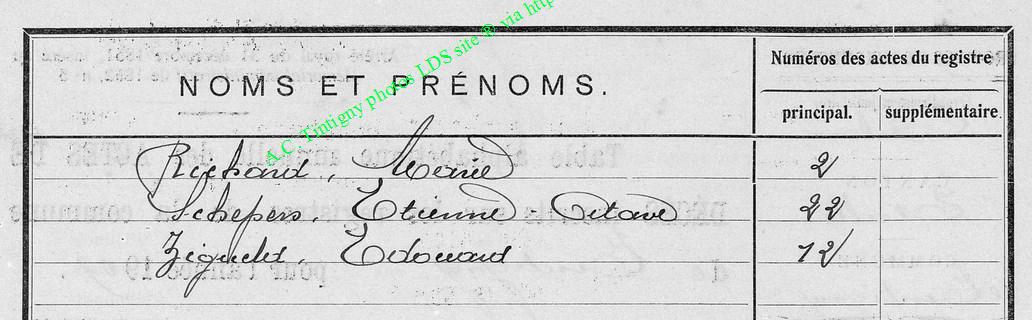 A.C. Tintigny photos LDS site ® via http
NOMS ET PRÉNOMS.
Numéros des actes du registre
principal.
supplémentaire.
Richard, Marie 2
Schepers, Etienne-Octave 22
Edouard 12